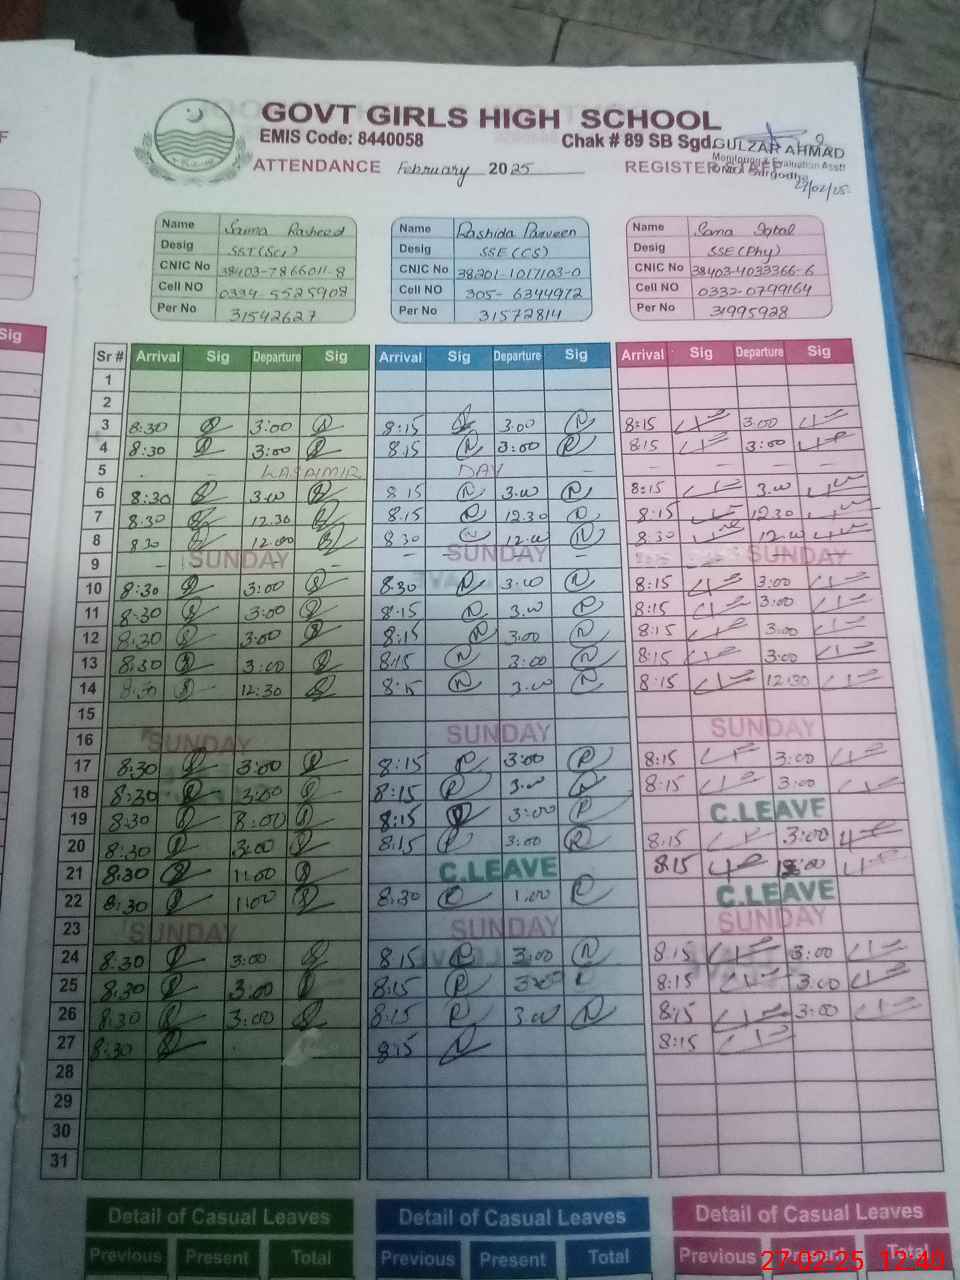 GOVT GIRLS HIGH SCHOOL
EMIS Code: 8440058 Chak # 89 SB Sgd.
GULZAR AHMAD
Monitoring & Evaluation Asstt
ATTENDANCE February 2025 REGISTER STAFF
27/02/25
Name Saima Rasheed Name Rashida Parveen Name Sana Iqbal
Desig SST(Sci) Desig SSE(CS) Desig SSE(Phy)
CNIC No 38403-7866011-8 CNIC No 38201-1017103-0 CNIC No 38403-4033366-6
Cell NO 0334-5525908 Cell NO 305-6344972 Cell NO 0332-0799164
Per No 31542627 Per No 31572814 Per No 31995928
Sig
Sr # Arrival Sig Departure Sig Arrival Sig Departure Sig Arrival Sig Departure Sig
1
2
3 8:30 3:00 8:15 3:00 8:15 3:00
4 8:30 3:00 8:15 3:00 8:15 3:00
5 KASHMIR DAY
6 8:30 3.00 8:15 3.00 8:15 3.00
7 8:30 12.30 8.15 12.30 8.15 12.30
8 8.30 12.00 8.30 12.00 8.30 12.00
9 SUNDAY SUNDAY SUNDAY
10 8:30 3:00 8.30 3.00 8:15 3:00
11 8:30 3:00 8:15 3.00 8:15 3:00
12 8:30 3:00 8:15 3:00 8:15 3:00
13 8:30 3:00 8:15 3:00 8:15 3:00
14 8:30 12:30 8:15 3.00 8:15 12:30
15
16 SUNDAY SUNDAY SUNDAY
17 8:30 3:00 8:15 3:00 8:15 3:00
18 8:30 3:00 8:15 3.00 8:15 3:00
19 8:30 8:00 8:15 3:00 C.LEAVE
20 8:30 3:00 8:15 3:00 8:15 3:00
21 8:30 11.00 C.LEAVE 8:15
22 8:30 1:00 8:30 1:00 C.LEAVE
23 SUNDAY SUNDAY SUNDAY
24 8:30 3:00 8:15 3:00 8:15 3:00
25 8:30 3:00 8:15 8:15 3:00
26 8:30 3:00 8:15 3.00 8:15 3:00
27 8:30 8:15 8:15
28
29
30
31
Detail of Casual Leaves Detail of Casual Leaves Detail of Casual Leaves
Previous Present Total Previous Present Total Previous Present Total
27-02-25 12:40